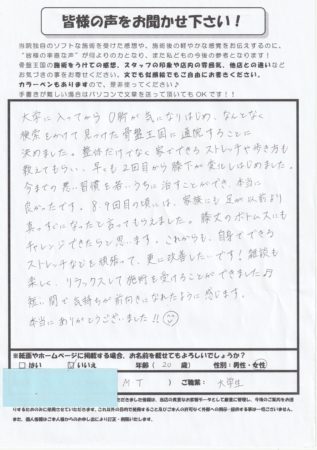 皆様の声をお聞かせ下さい！
当院独自のソフトな施術を受けた感想や、施術後の軽やかな感覚をお伝えするのに、
"皆様の率直な声"が何よりの力となり、また私どもの今後の参考になります。
骨盤王国の施術をうけての感想、スタッフの印象や店内の雰囲気、他店との違いなど
お気づきの事をお寄せください。文でも似顔絵でもご自由にお書きください。
カラーペンもありますので、是非使ってください♪
手書きが難しい場合はパソコンで文章を送って頂いてもOKです！！
大学に入ってから O脚が気になりはじめ、なんとなく
検索をかけて見つけた骨盤王国に通院することに
決めました。整体だけでなく家でできるストレッチや歩き方も
教えてもらい、早くも2回目から膝下が変化しはじめました。
今までの悪い習慣を若いうちに治すことができ、本当に
良かったです。8、9回目の頃には、家族にも足が以前より
真っすぐになったと言ってもらえました。膝丈のボトムスにも
チャレンジできたらと思います。これからも、自身でできる
ストレッチなどを頑張って、更に改善したいです！雑談も
楽しく、リラックスして施術を受けることができました♪
短い間で気持ちが前向きになれたように感じます。
本当にありがとうございました!!
※紙面やホームページに掲載する場合、お名前を載せてもよろしいでしょうか？
□ はい □ いいえ 年齢（ 20 歳） 性別：男性・女性
M T ご職業： 大学生